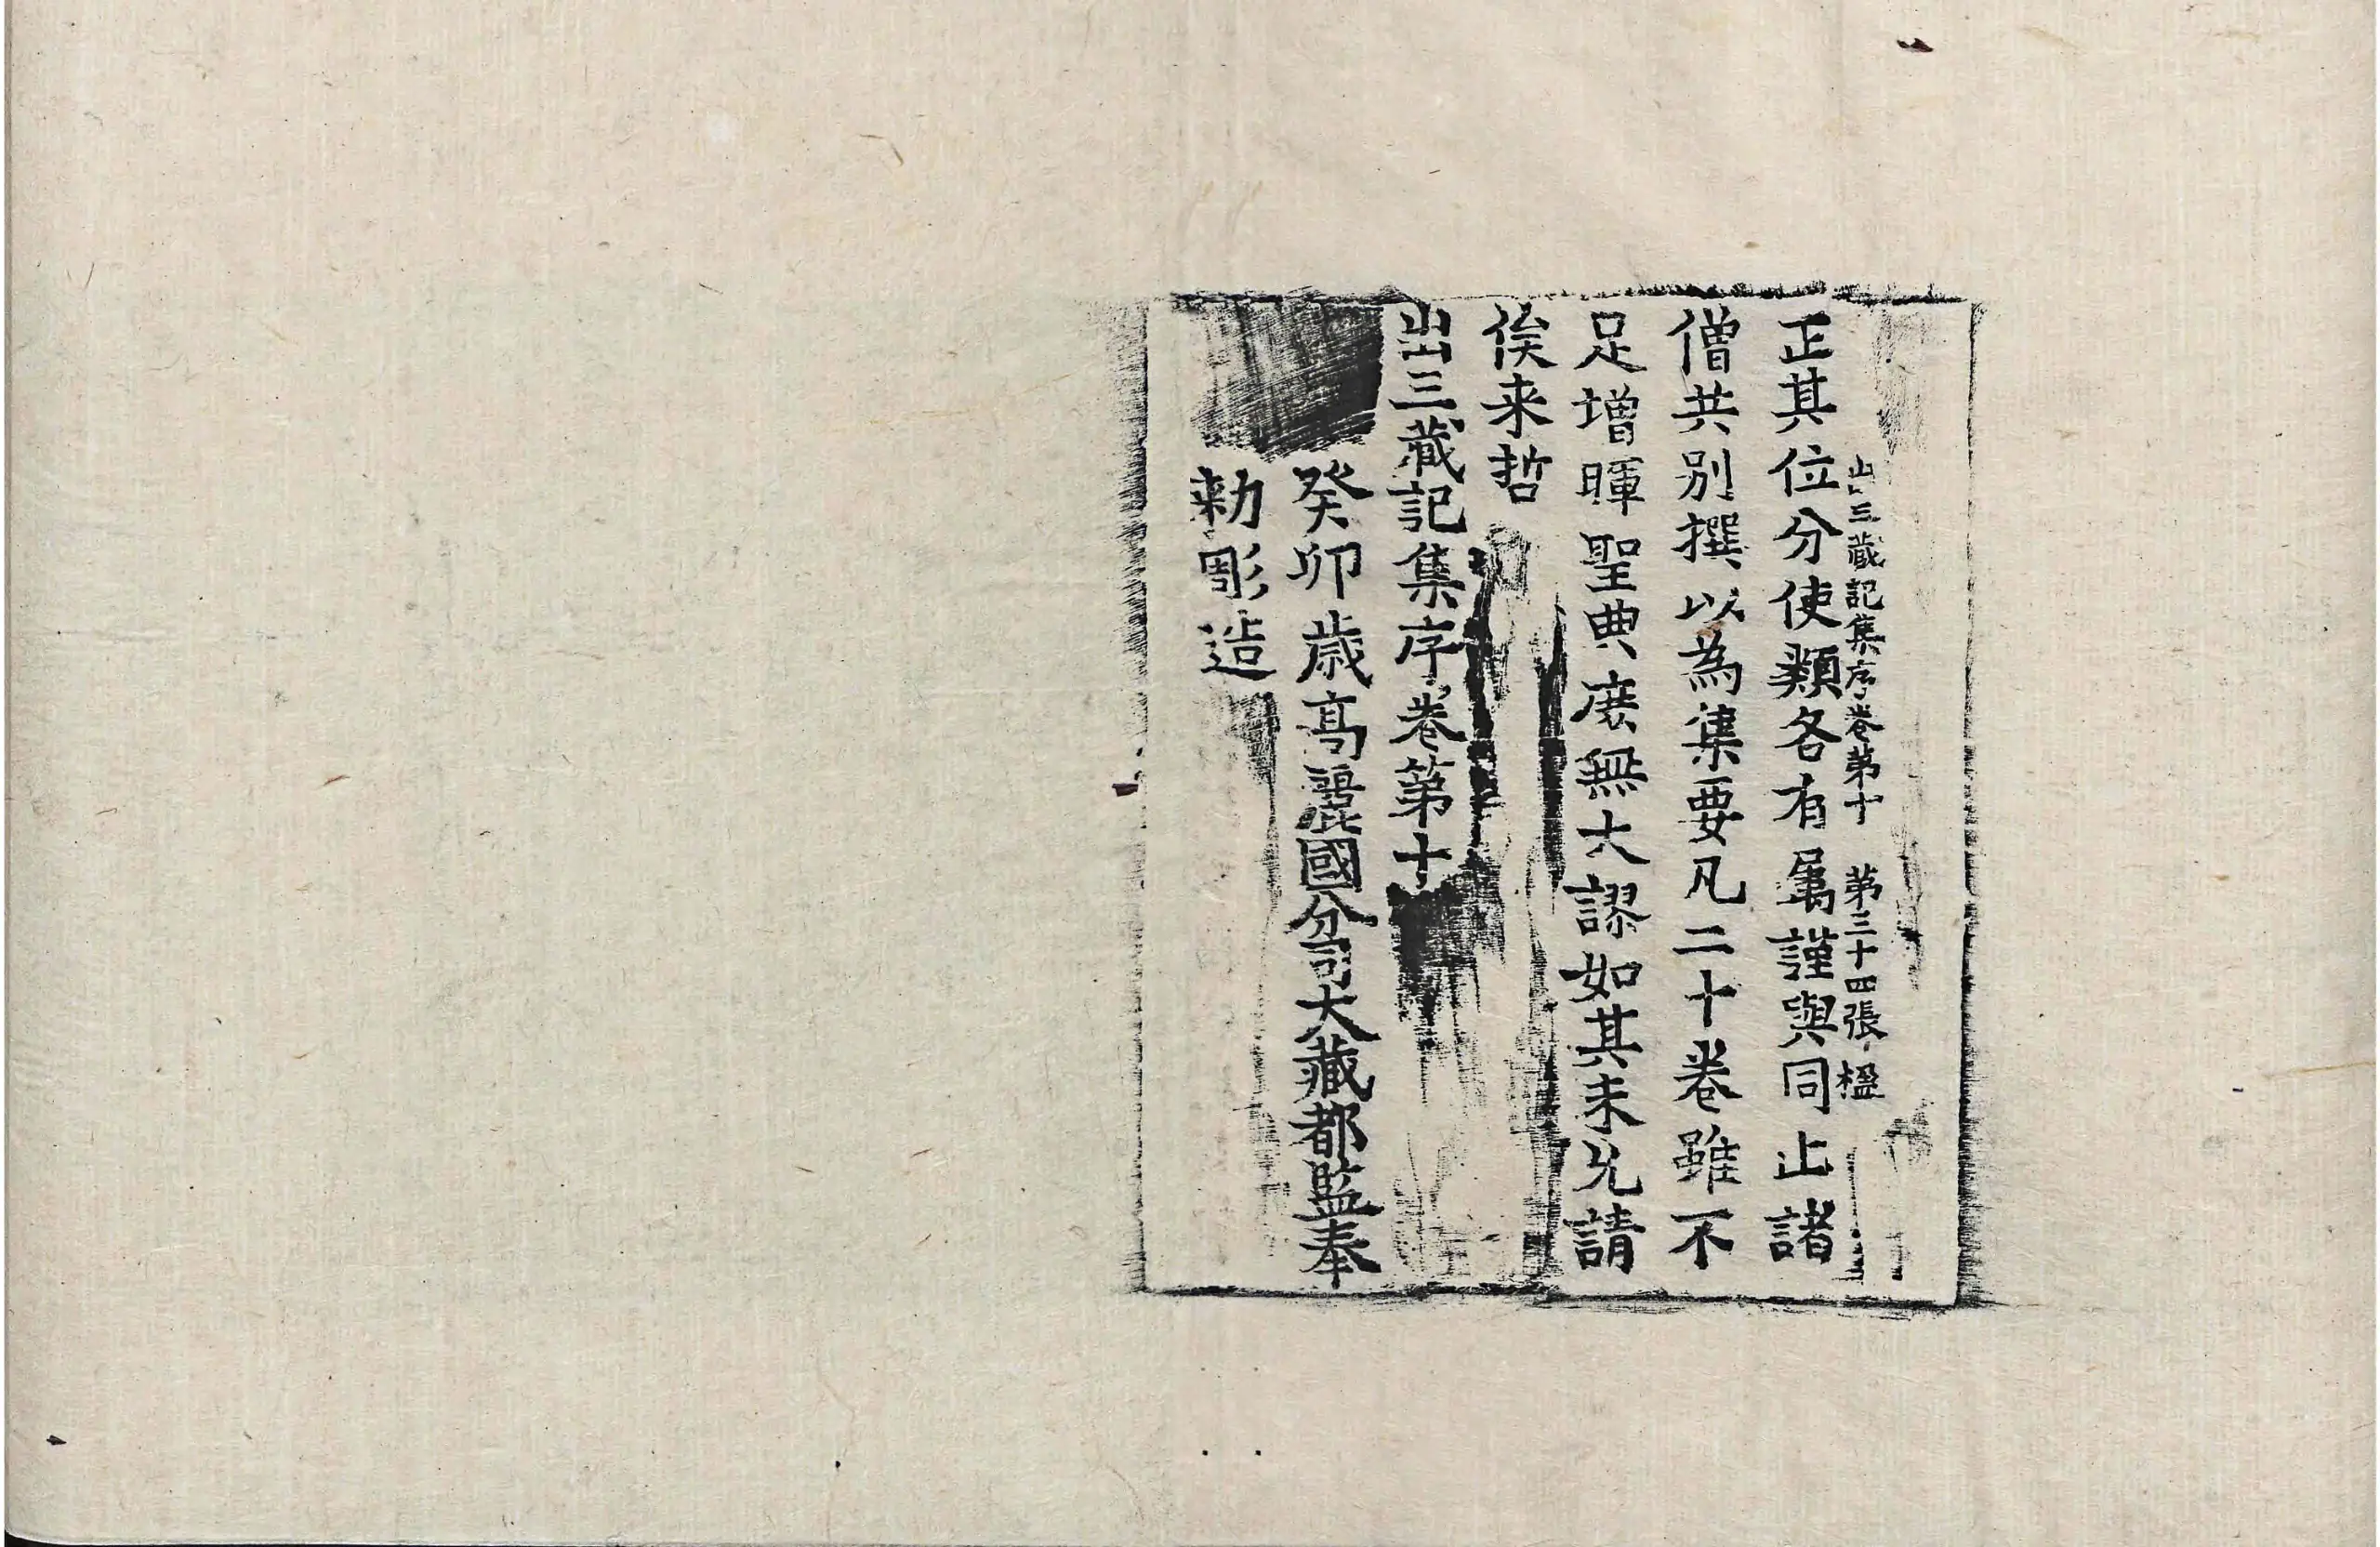 出三藏記集序卷第十 第三十四張 楹
正其位分使類各有属謹與同止諸
僧共别撰以為集要凡二十卷雖不
足增暉聖典庶無大謬如其未允請
俟来哲
出三藏記集序卷第十
癸卯歲高麗國分司大藏都監奉
勅彫造